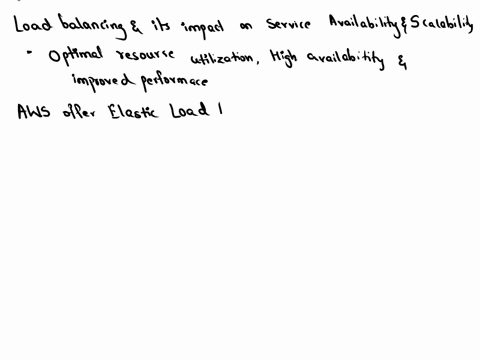 Load balancing & its impact on Service Availability & Scalability
- Optimal resourse utilization, High availability &
improved performace
AWS offer Elastic Load l